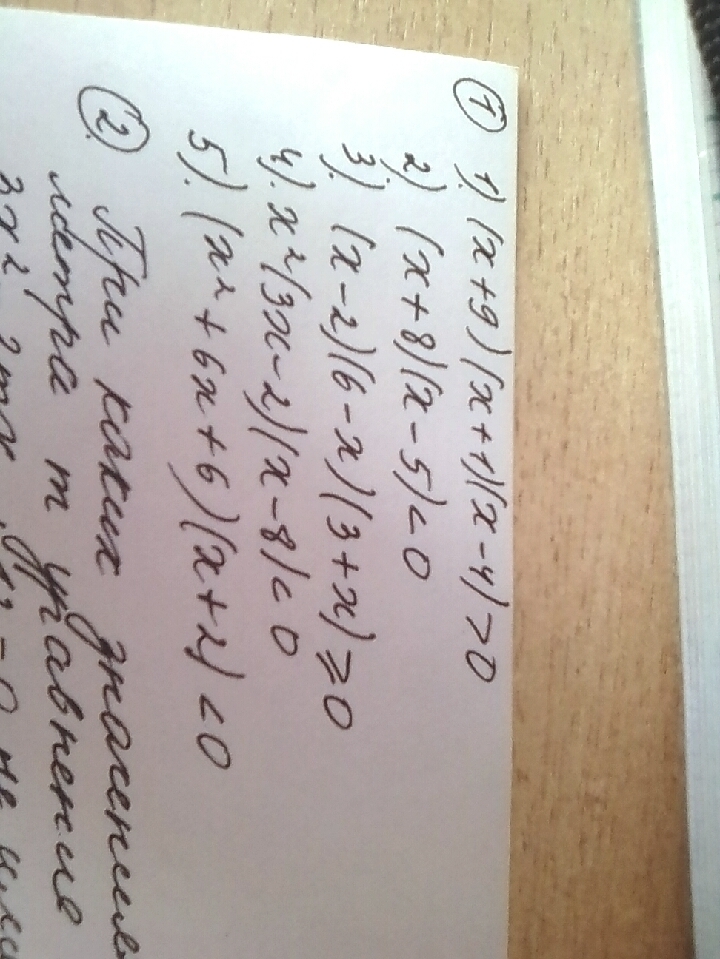 ① 1) (x+9)(x+1)(x-4)>0
2) (x+8)(x-5)<0
3) (x-2)(6-x)(3+x)≥0
4) x²(3x-2)(x-8)<0
5) (x²+6x+6)(x+2)<0
② При каких значениях
метра m уравнение
3x² - 2mx